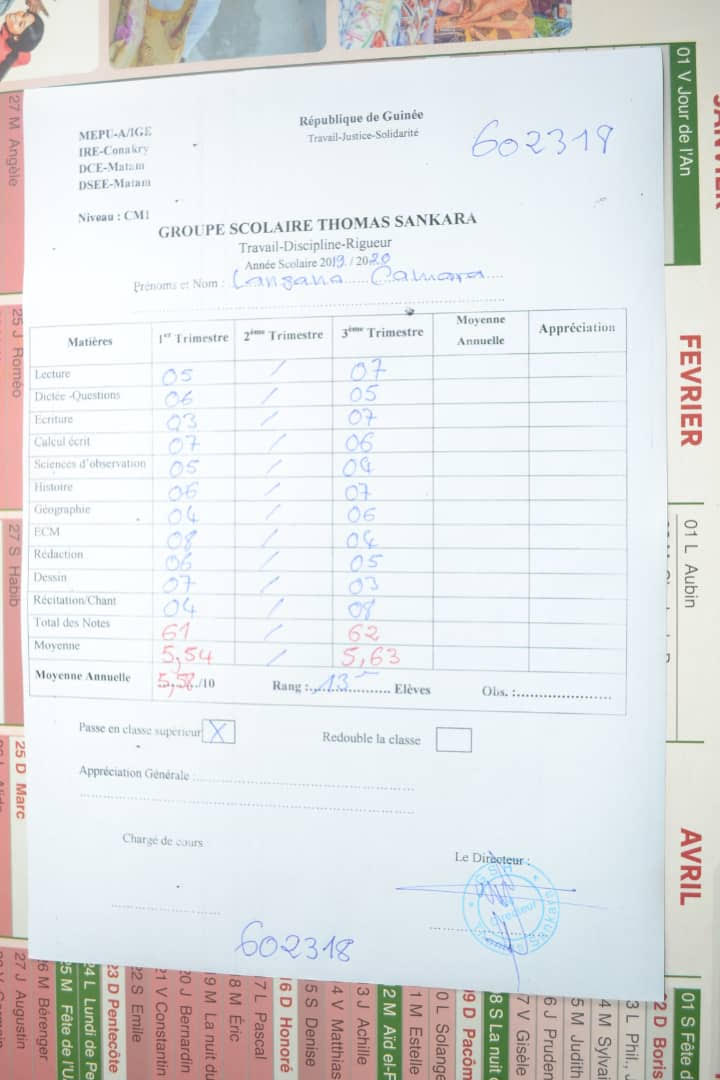 MEPU-A/IGE
IRE-Conakry
DCE-Matam
DSEE-Matam
République de Guinée
Travail-Justice-Solidarité
602318
Niveau : CM1
GROUPE SCOLAIRE THOMAS SANKARA
Travail-Discipline-Rigueur
Année Scolaire 2019 / 2020
Prénoms et Nom : Lansana Camara
Matières 1er Trimestre 2ème Trimestre 3ème Trimestre Moyenne Annuelle Appréciation
Lecture 05 / 07
Dictée -Questions 06 / 05
Ecriture 03 / 07
Calcul écrit 07 / 06
Sciences d'observation 05 / 04
Histoire 06 / 07
Géographie 04 / 06
ECM 08 / 04
Rédaction 06 / 05
Dessin 07 / 03
Récitation/Chant 04 / 08
Total des Notes 61 / 62
Moyenne 5,54 / 5,63
Moyenne Annuelle 5,58/10 Rang : 13 Elèves Obs. :
Passe en classe supérieur X Redouble la classe
Appréciation Générale
Chargé de cours
Le Directeur :
Directeur
602318
01 V Jour de l'An
FEVRIER
01 L Aubin
AVRIL
01 S Fête d
27 M Angèle
25 J Roméo
27 S Habib
25 D Marc
27 J Augustin
26 M Bérenger
25 M Fête de l'U
24 L Lundi de Pe
23 D Pentecôte
22 S Emile
21 V Constantin
20 J Bernardin
19 M La nuit du
18 M Éric
17 L Pascal
16 D Honoré
15 S Denise
14 V Matthias
13 J Achille
12 M Aïd el-F
11 M Estelle
10 L Solange
09 D Pacôm
08 S La nuit
07 V Gisèle
06 J Pruden
05 M Judith
04 M Sylva
03 L Phil., J
02 D Boris